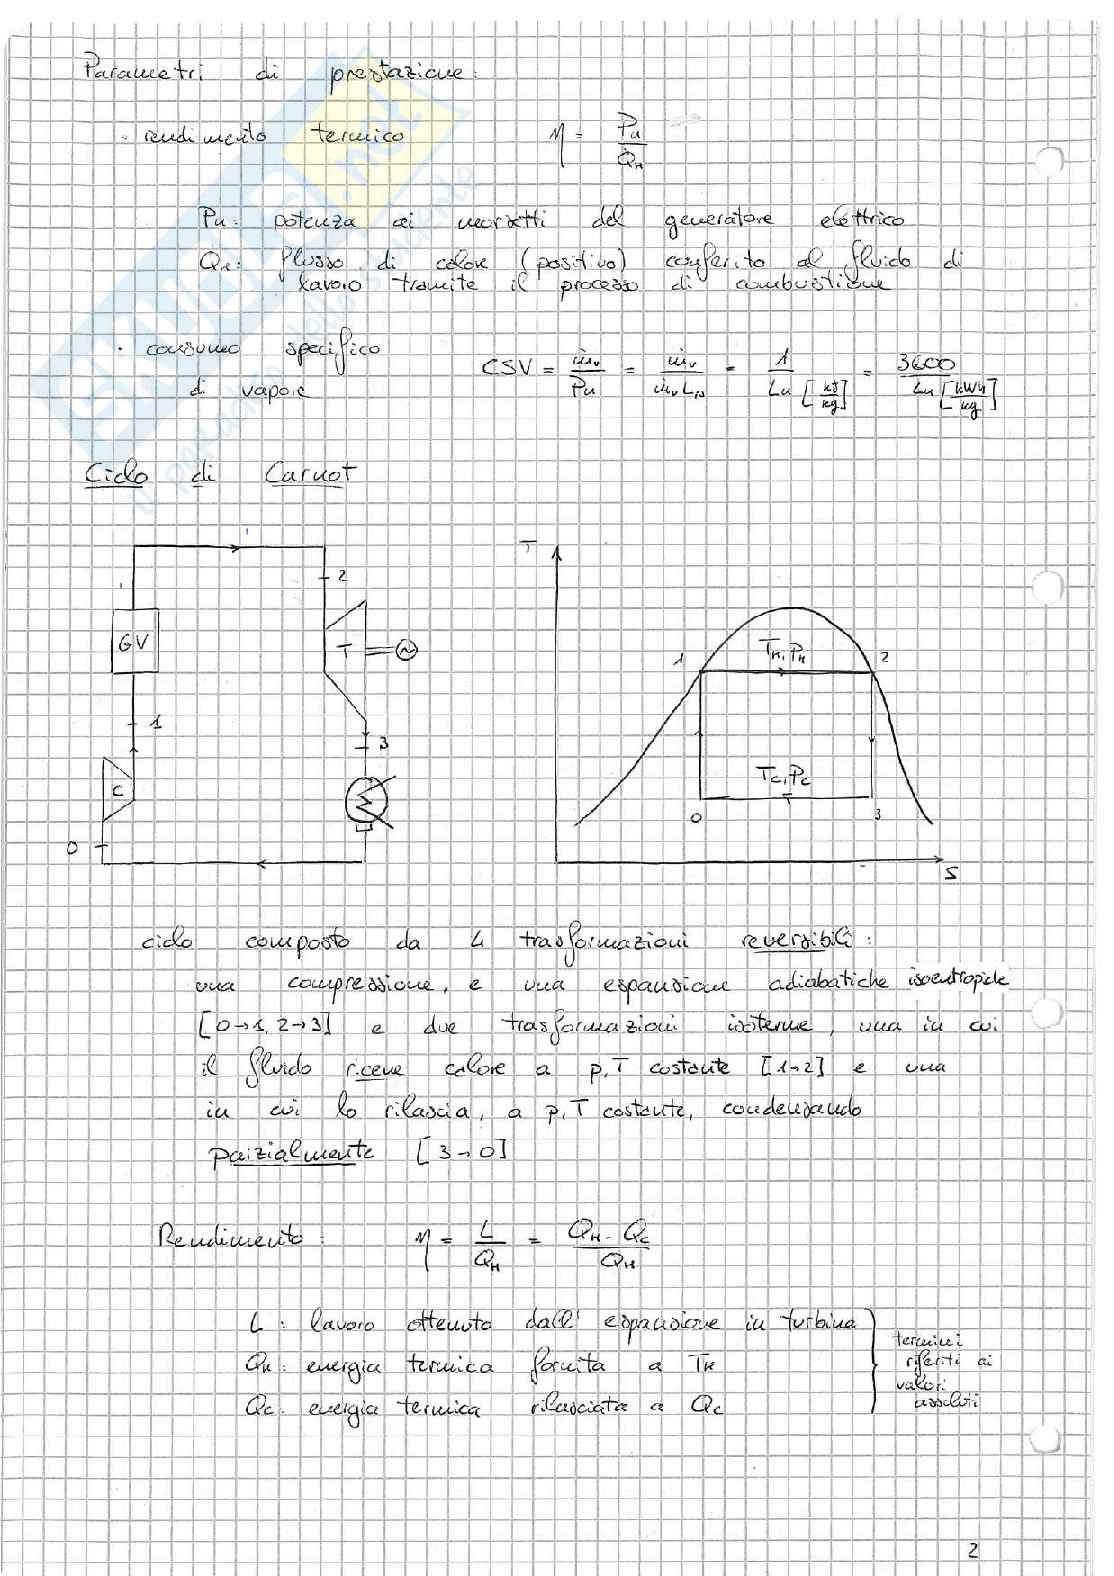 Parametri di prestazione:
· rendimento termico η = Pu / QH
Pu: potenza ai morsetti del generatore elettrico
QH: flusso di calore (positivo) conferito al fluido di
lavoro tramite il processo di combustione
· consumo specifico
di vapore CSV = ṁv / Pu = ṁv / ṁv Lu = 1 / Lu [kJ/kg] = 3600 / Lu [kWh/kg]
Ciclo di Carnot
2
GV
T
1
3
C
0
T
1 TH, PH 2
TC, PC
0 3
S
ciclo composto da 4 trasformazioni reversibili:
una compressione, e una espansione adiabatiche isoentropiche
[0→1, 2→3] e due trasformazioni isoterme, una in cui
il fluido riceve calore a p,T costante [1→2] e una
in cui lo rilascia, a p,T costante, condensando
parzialmente [3→0]
Rendimento: η = L / QH = QH - QC / QH
L: lavoro ottenuto dall' espansione in turbina
QH: energia termica fornita a TH
QC: energia termica rilasciata a QC
termini
riferiti ai
valori
assoluti
2
SKUOLA.net
il paradiso dello studente